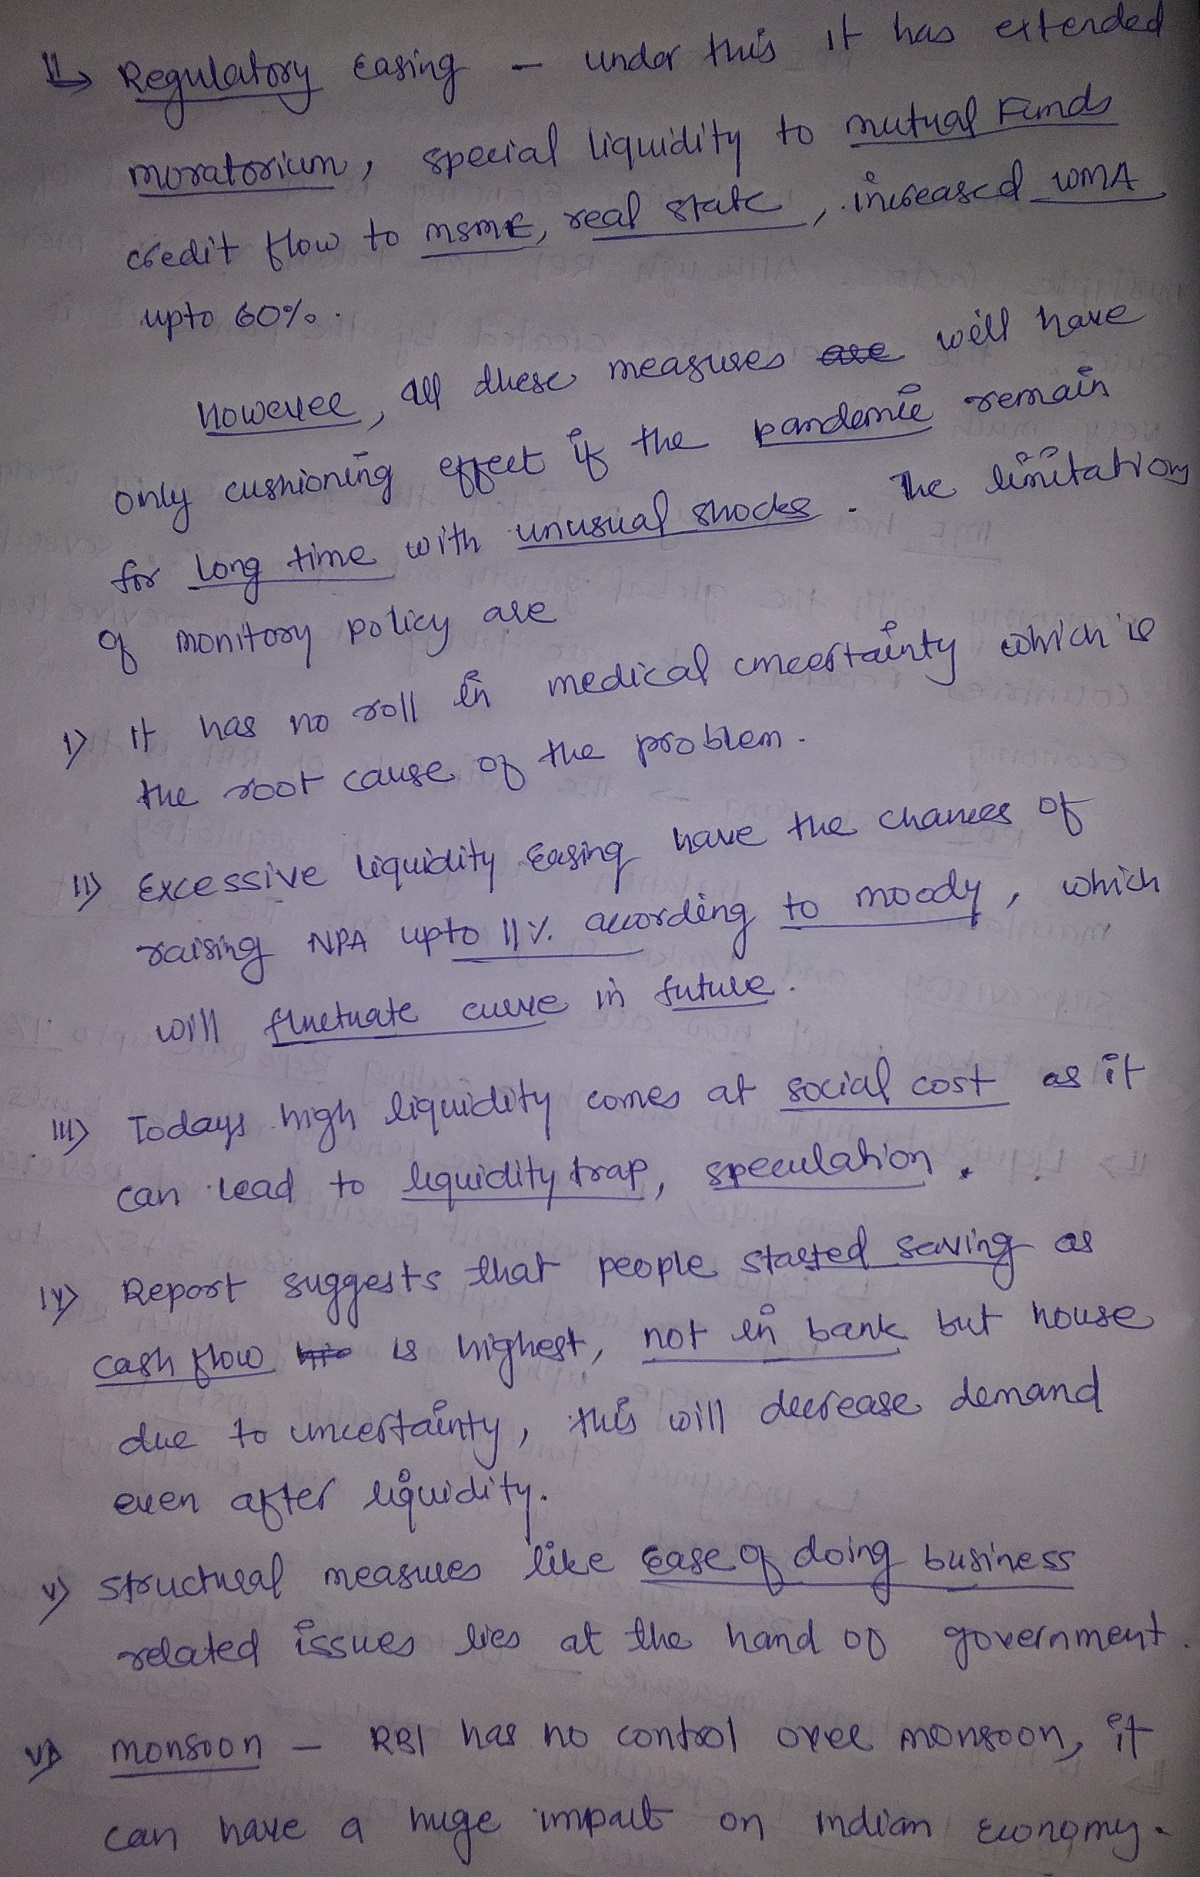 ↳ Regulatory Easing - under this it has extended
moratorium, special liquidity to mutual Funds
credit flow to MSME, real state, increased WMA
upto 60%.
However, all these measures are will have
only cushioning effect if the pandemic remain
for long time with unusual shocks. The limitations
of monitory policy are
i) It has no roll in medical uncertainty which is
the root cause of the problem.
ii) Excessive liquidity Easing have the chances of
raising NPA upto 11% according to moody, which
will fluctuate curve in future.
iii) Todays high liquidity comes at social cost as it
can lead to liquidity trap, speculation.
iv) Report suggests that people started saving as
cash flow is highest, not in bank but house
due to uncertainty, this will decrease demand
even after liquidity.
v) structural measures like Ease of doing business
related issues lies at the hand of government.
vi) monsoon - RBI has no control over monsoon, it
can have a huge impact on Indian Economy.